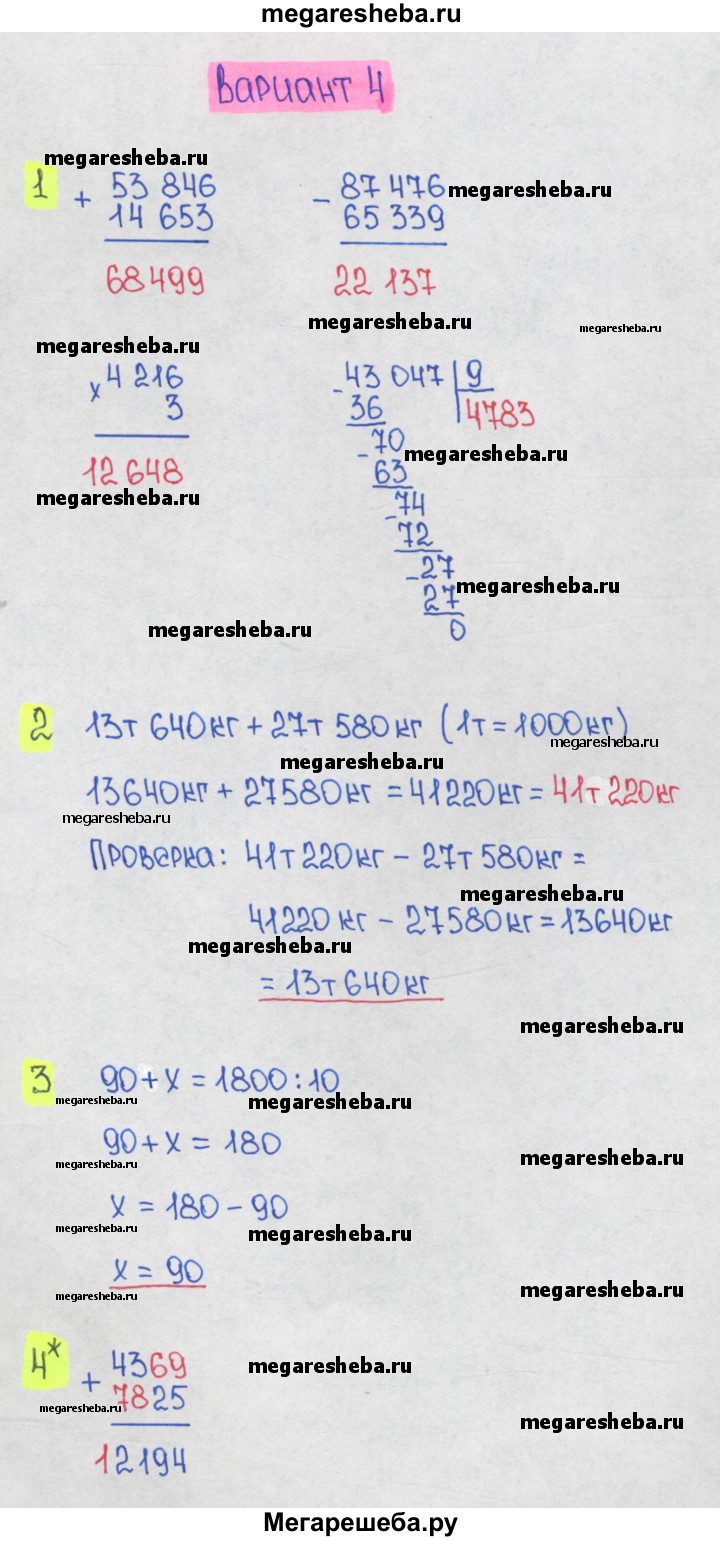 megaresheba.ru
Вариант 4
megaresheba.ru
1 + 53 846 - 87 476 megaresheba.ru
14 653 65 339
68499 22 137
megaresheba.ru megaresheba.ru
megaresheba.ru
x 4 216 - 43 047 | 9
3 36 4783
- 70 megaresheba.ru
12 648 63
megaresheba.ru - 74
72
- 27 megaresheba.ru
27
megaresheba.ru 0
2 13т 640кг + 27т 580кг (1т = 1000кг)
megaresheba.ru megaresheba.ru
13640кг + 27580кг = 41220кг = 41т 220кг
megaresheba.ru
Проверка: 41т 220кг - 27т 580кг =
megaresheba.ru
41220 кг - 27580кг = 13640кг
megaresheba.ru
= 13т 640кг
megaresheba.ru
3 90 + x = 1800 : 10
megaresheba.ru megaresheba.ru
90 + x = 180
megaresheba.ru megaresheba.ru
x = 180 - 90
megaresheba.ru megaresheba.ru
x = 90
megaresheba.ru megaresheba.ru
4* + 4369 megaresheba.ru
7825
megaresheba.ru megaresheba.ru
12194
Мегарешеба.ру